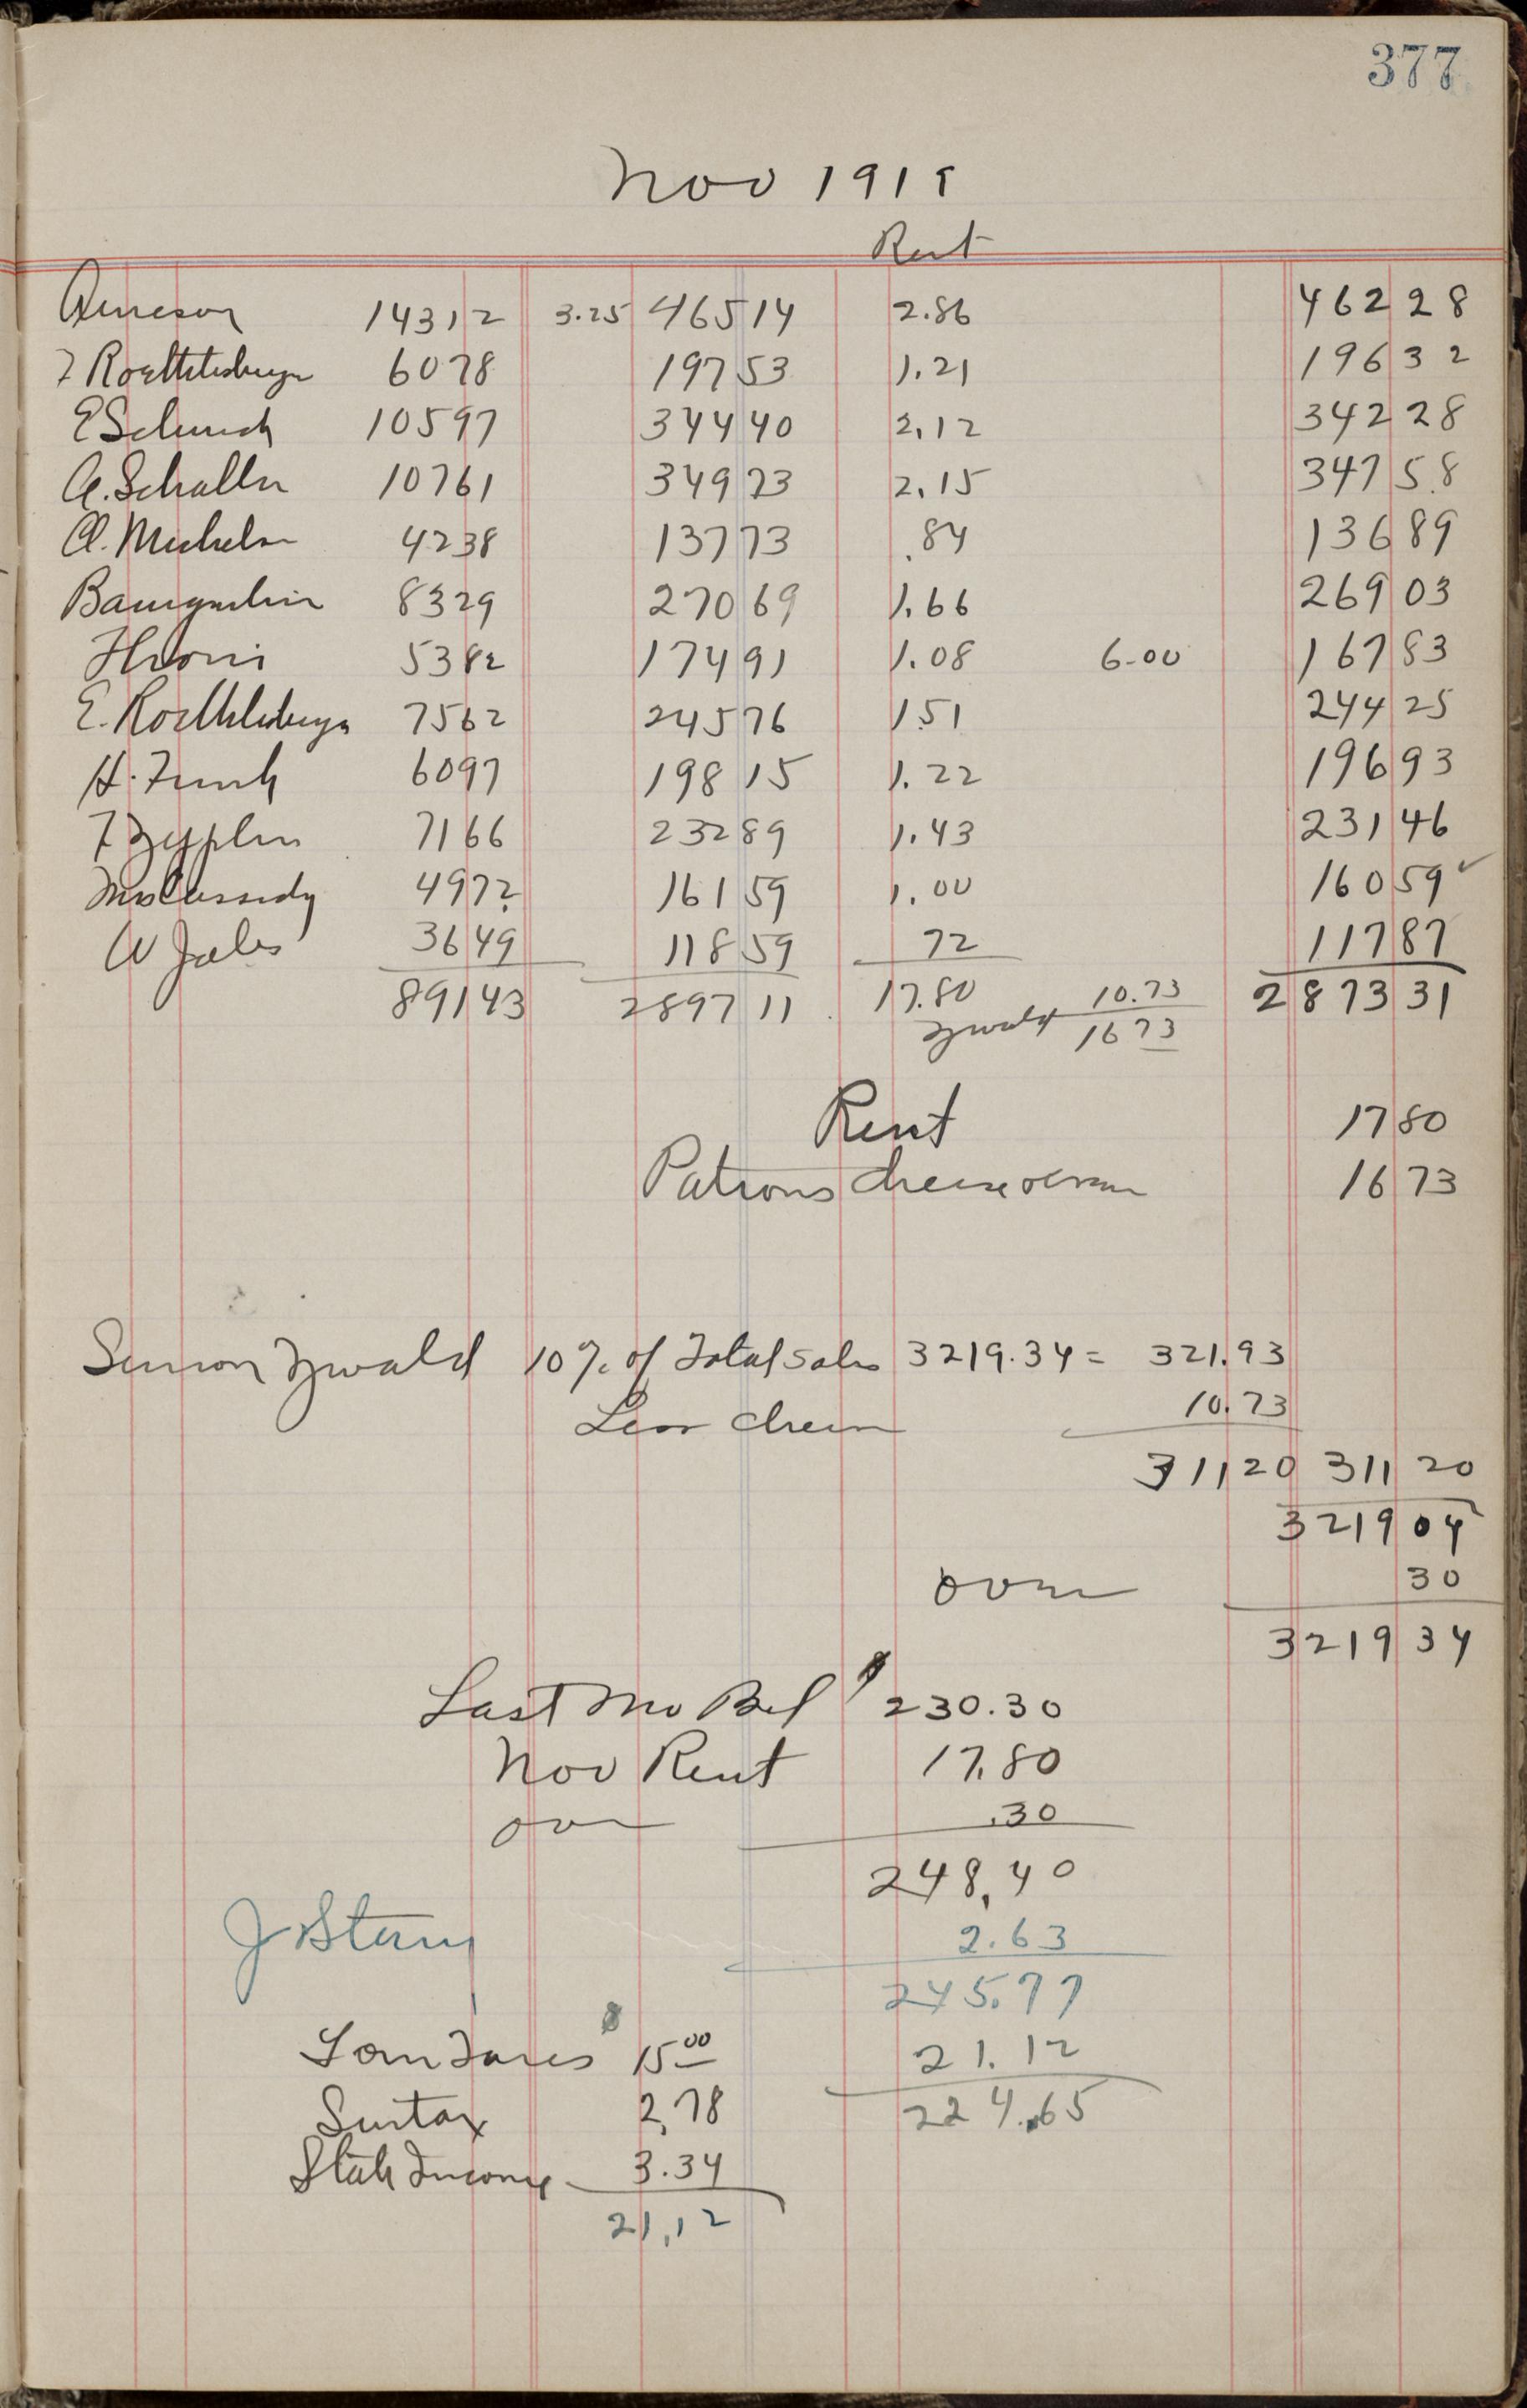 377
Nov 1918
Rent
Arneson 14312 3.25 465 14 2.86 462 28
F Roethlisberger 6078 197 53 1.21 196 32
E Schmid 10597 344 40 2.12 342 28
A. Schaller 10761 349 73 2.15 347 58
A. Michelson 4238 137 73 .84 136 89
Baumgartner 8329 270 69 1.66 269 03
Thorni 5382 174 91 1.08 6.00 167 83
E. Roethlisberger 7562 245 76 1.51 244 25
H. Funk 6097 198 15 1.22 196 93
F Zyplin 7166 232 89 1.43 231 46
Mrs Cassidy 4972 161 59 1.00 160 59 ✓
W Jabs 3649 118 59 72 117 87
89143 2897 11 17.80 10.73 2873 31
Zwald 16 73
Rent 17 80
Patrons cheese 16 73
Simon Zwald 10% of Total Sales 3219.34 = 321.93
Less cheese 10.73
311 20 311 20
3219 04
over 30
3219 34
Last mo Bal $ 230.30
Nov Rent 17.80
over .30
248.40
J Stern 2.63
245.77
Town Taxes $ 15 00 21.12
Surtax 2.78 224.65
State Income 3.34
21.12